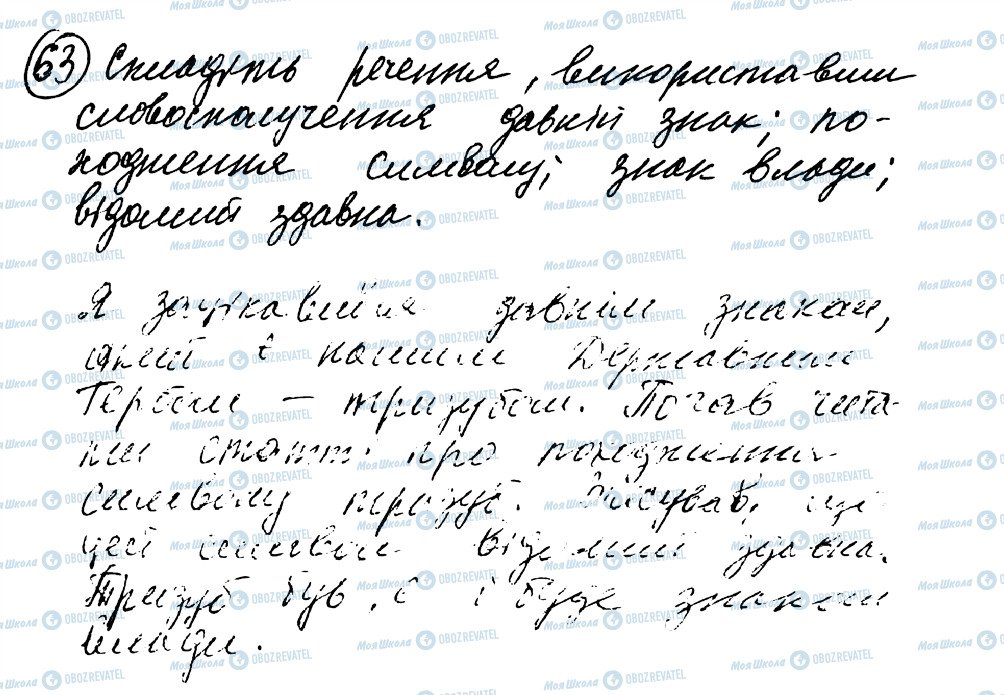 63 Складіть речення, використавши
словосполучення давній знак; по-
ходження символу; знак влади;
відомий здавна.
Я зацікавився давнім знаком,
який є нашим Державним
Гербом — тризубом. Почав чита-
ти статті про походження
символу тризуб. З'ясував, що
цей символ відомий здавна.
Тризуб був, є і буде знаком
влади.